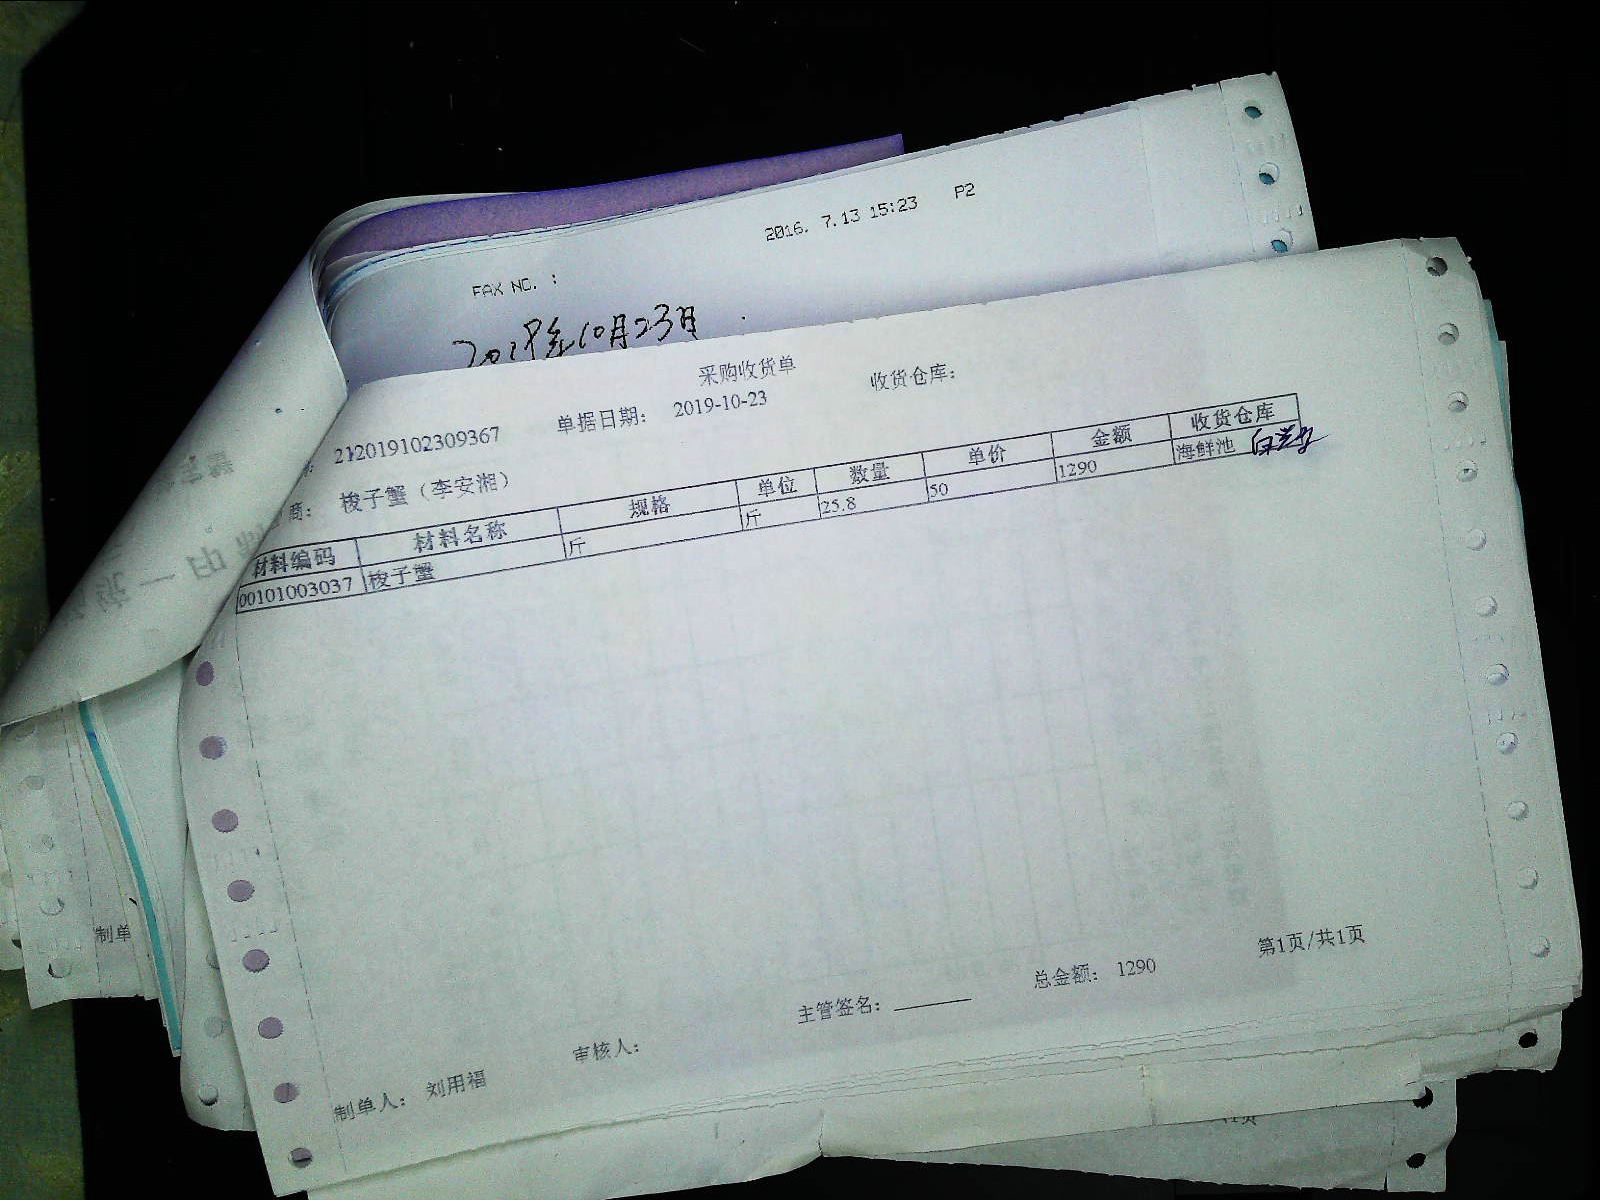 2016. 7.13 15:23 P2
FAX NO. :
2019年10月23日
采购收货单
212019102309367 单据日期： 2019-10-23 收货仓库：
商： 梭子蟹（李安湘）
材料编码 材料名称 规格 单位 数量 单价 金额 收货仓库
00101003037 梭子蟹 斤 斤 25.8 50 1290 海鲜池
制单
第1页/共1页
主管签名： 总金额： 1290
制单人： 刘用福 审核人：